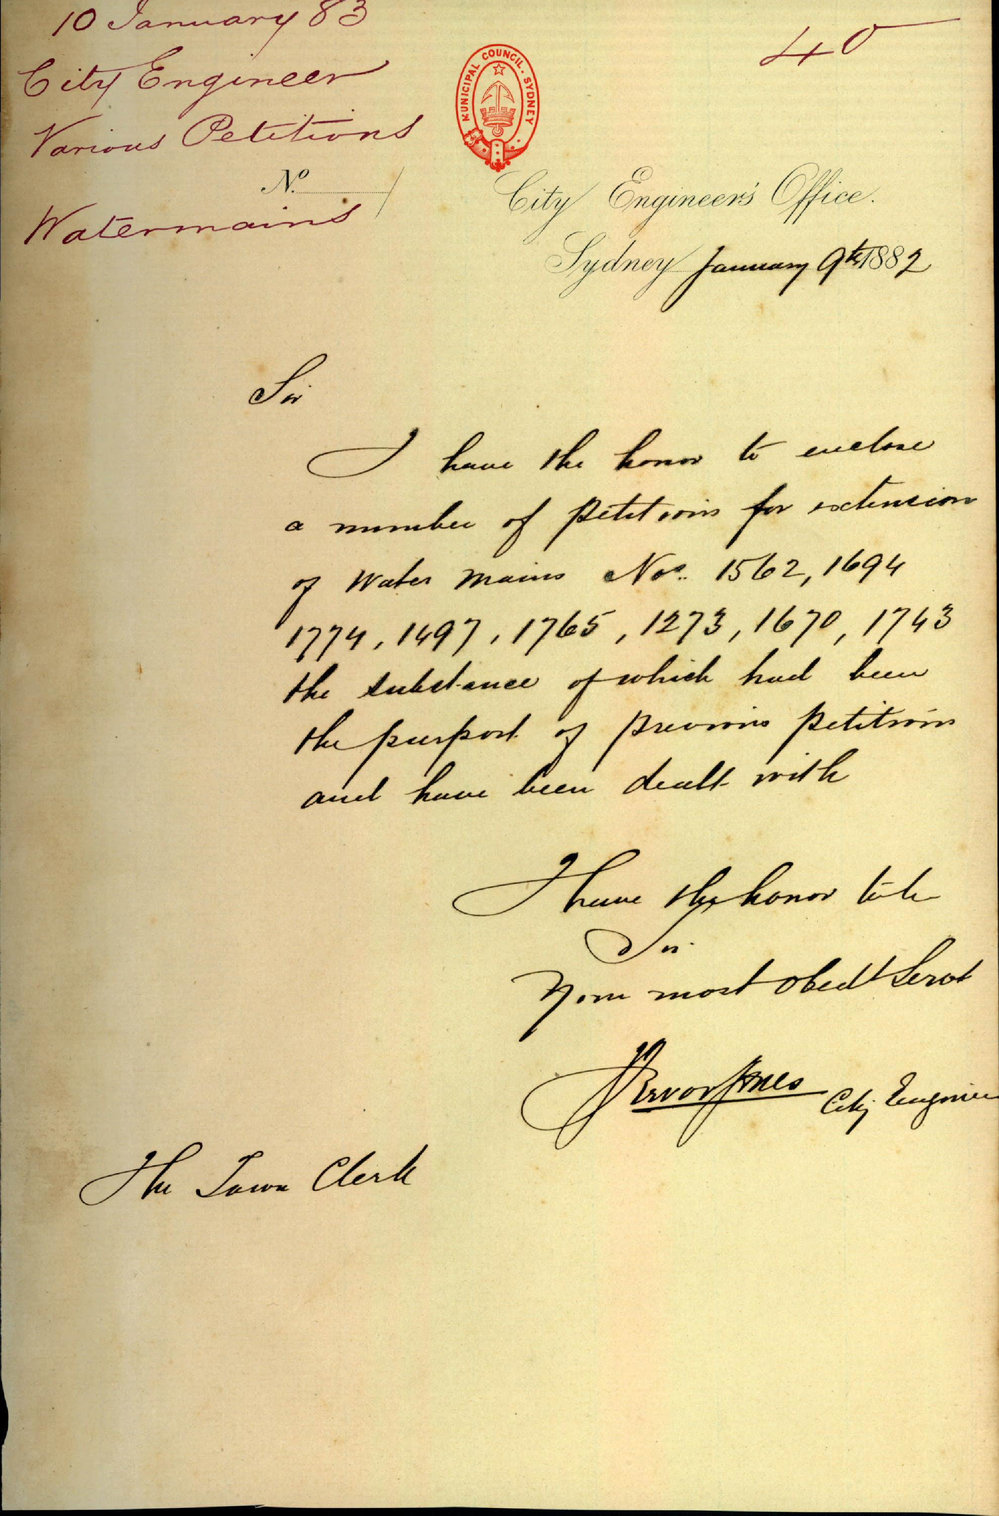 10 January 83
City Engineer
Various Petitions
No.
Watermains
40
MUNICIPAL COUNCIL. SYDNEY
City Engineer's Office.
Sydney January 9th 1882
Sir
I have the honor to enclose
a number of petitions for extension
of Water mains Nos. 1562, 1694
1774, 1497, 1765, 1273, 1670, 1743
the substance of which had been
the purport of previous petitions
and have been dealt with
I have the honor to be
Sir
Your most obedt Servt
Trevor Jones City Engineer
The Town Clerk